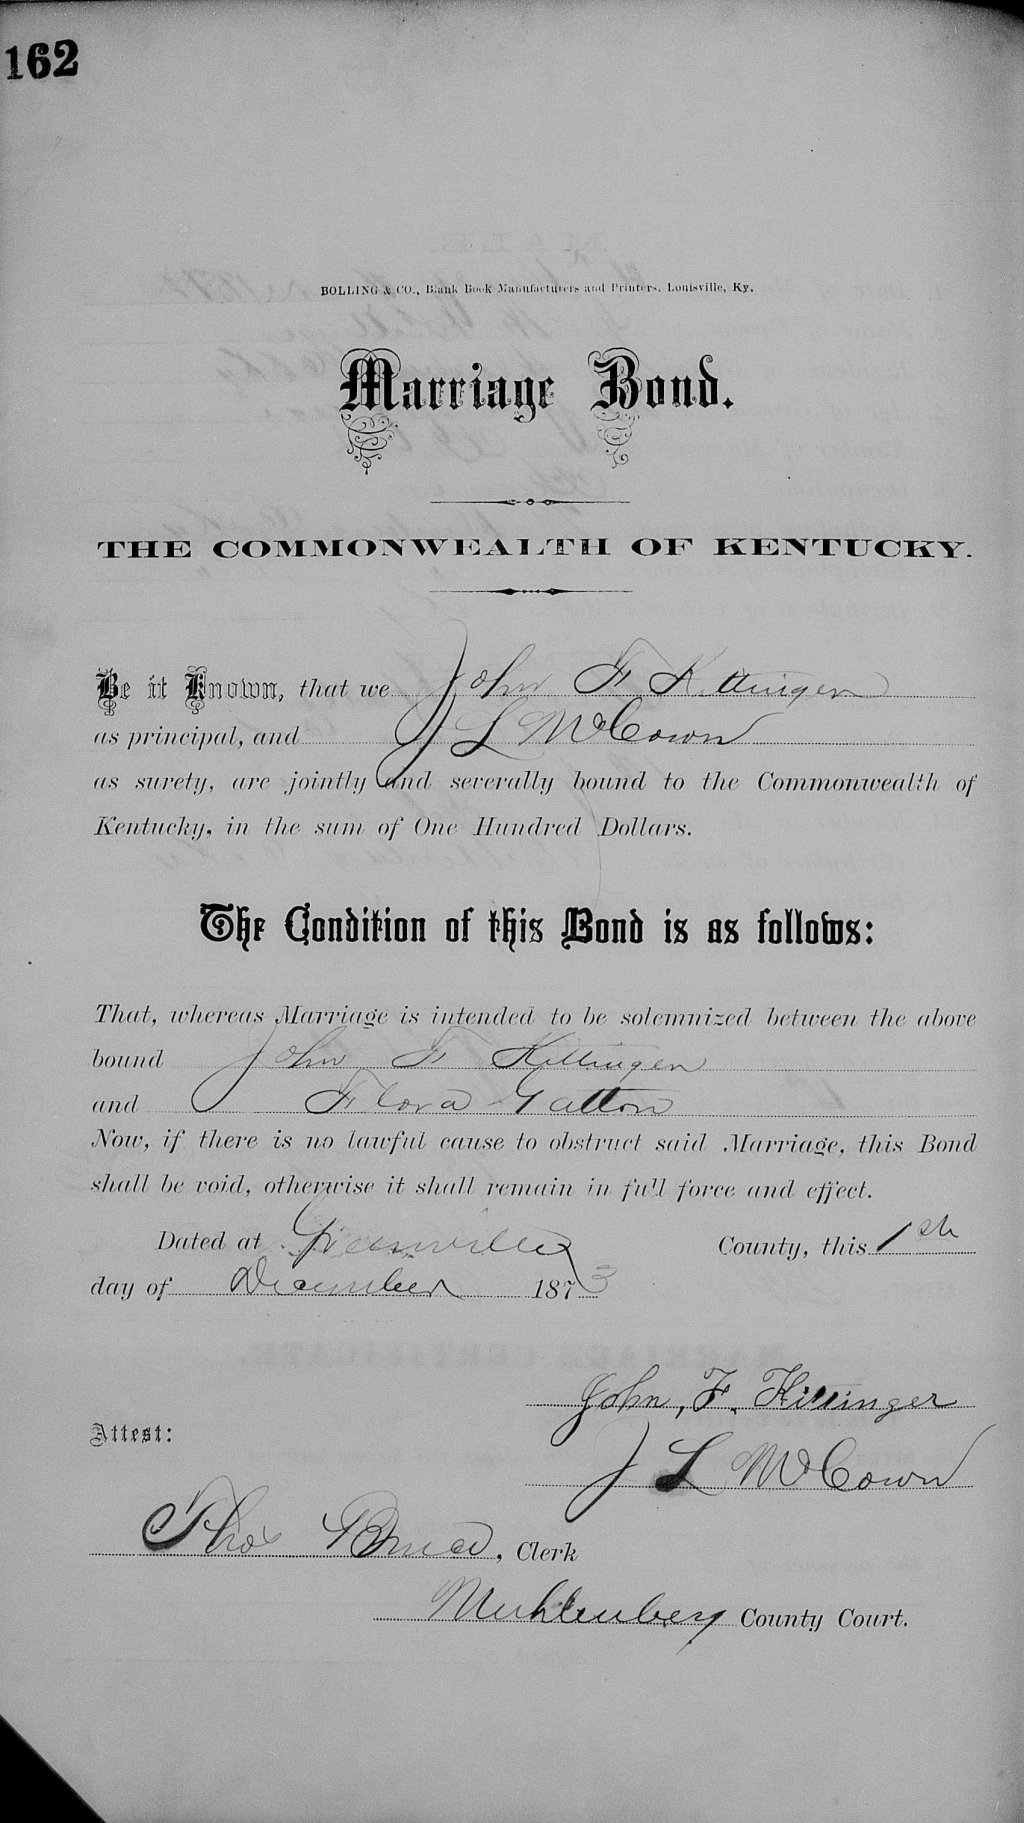 162
BOLLING & CO., Blank Book Manufacturers and Printers, Louisville, Ky.
Marriage Bond.
THE COMMONWEALTH OF KENTUCKY.
Be it Known, that we John F Kittingen
as principal, and J L McCown
as surety, are jointly and severally bound to the Commonwealth of
Kentucky, in the sum of One Hundred Dollars.
The Condition of this Bond is as follows:
That, whereas Marriage is intended to be solemnized between the above
bound John F Kittingen
and Flora Gatton
Now, if there is no lawful cause to obstruct said Marriage, this Bond
shall be void, otherwise it shall remain in full force and effect.
Dated at Greenville County, this 1st
day of December 1873
John, F. Kittinger
Attest:
J L McCown
Thos Bruce, Clerk
Muhlenberg County Court.